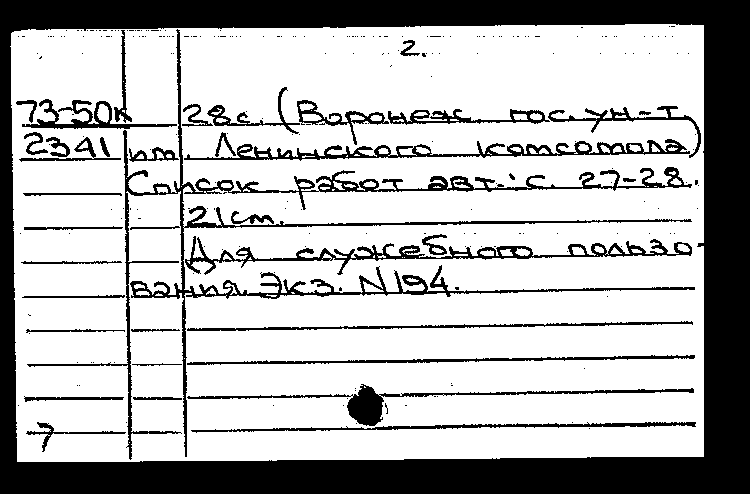 2.
73-50к 28с. (Воронеж. гос. ун-т
2341 им. Ленинского комсомола)
Список работ авт.: с. 27-28.
21см.
Для служебного пользо-
вания. Экз. N 194.
7